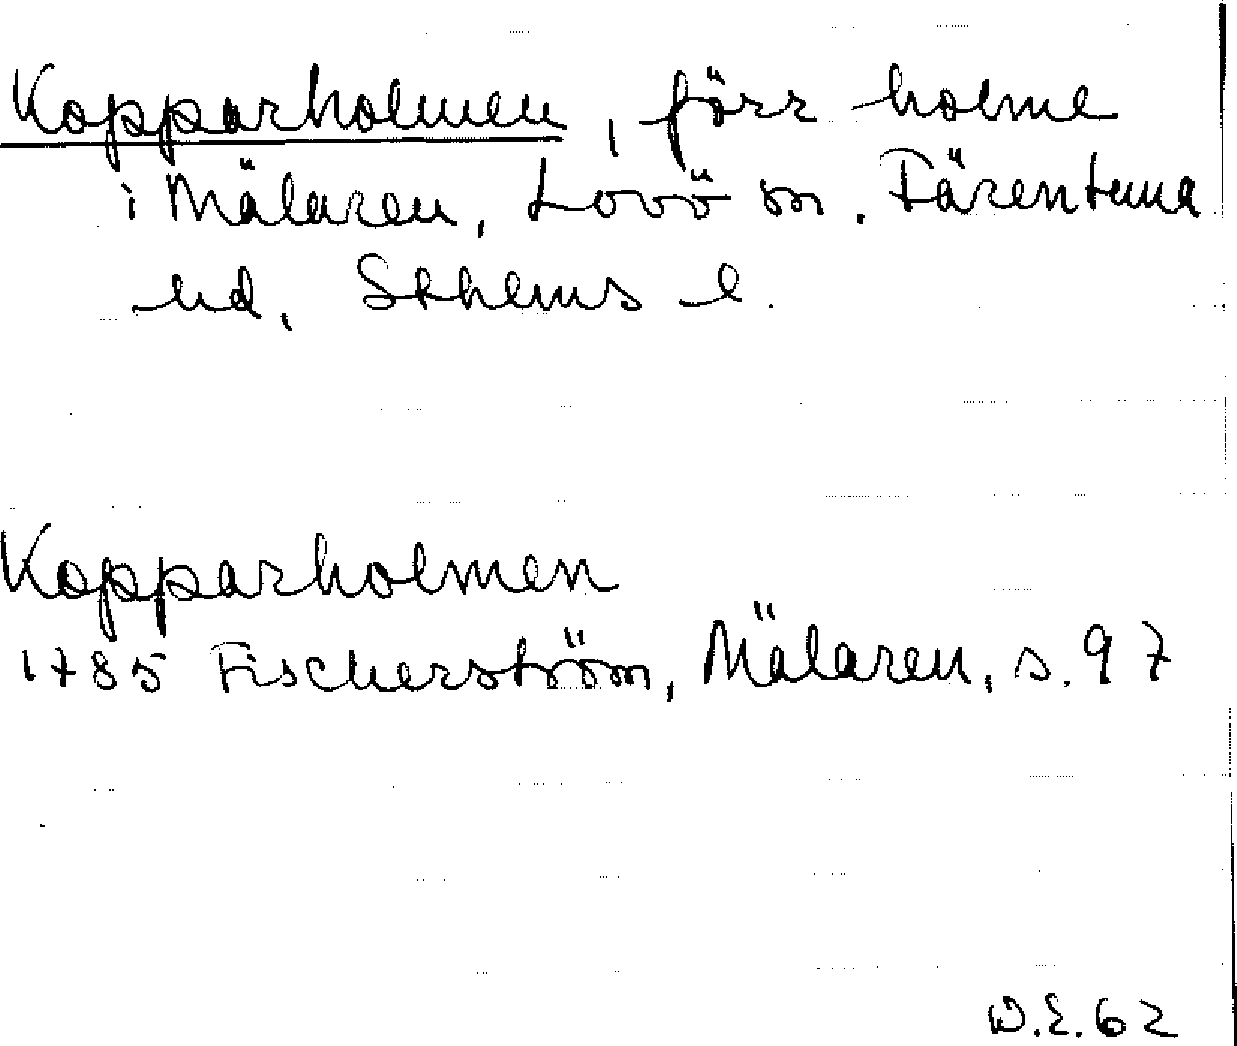 Kopparholmen, förr holme
i Mälaren, Lovö sn. Färentuna
hd, Sthlms l.
Kopparholmen
1785 Fischerström, Mälaren, s. 97
D.E. 62